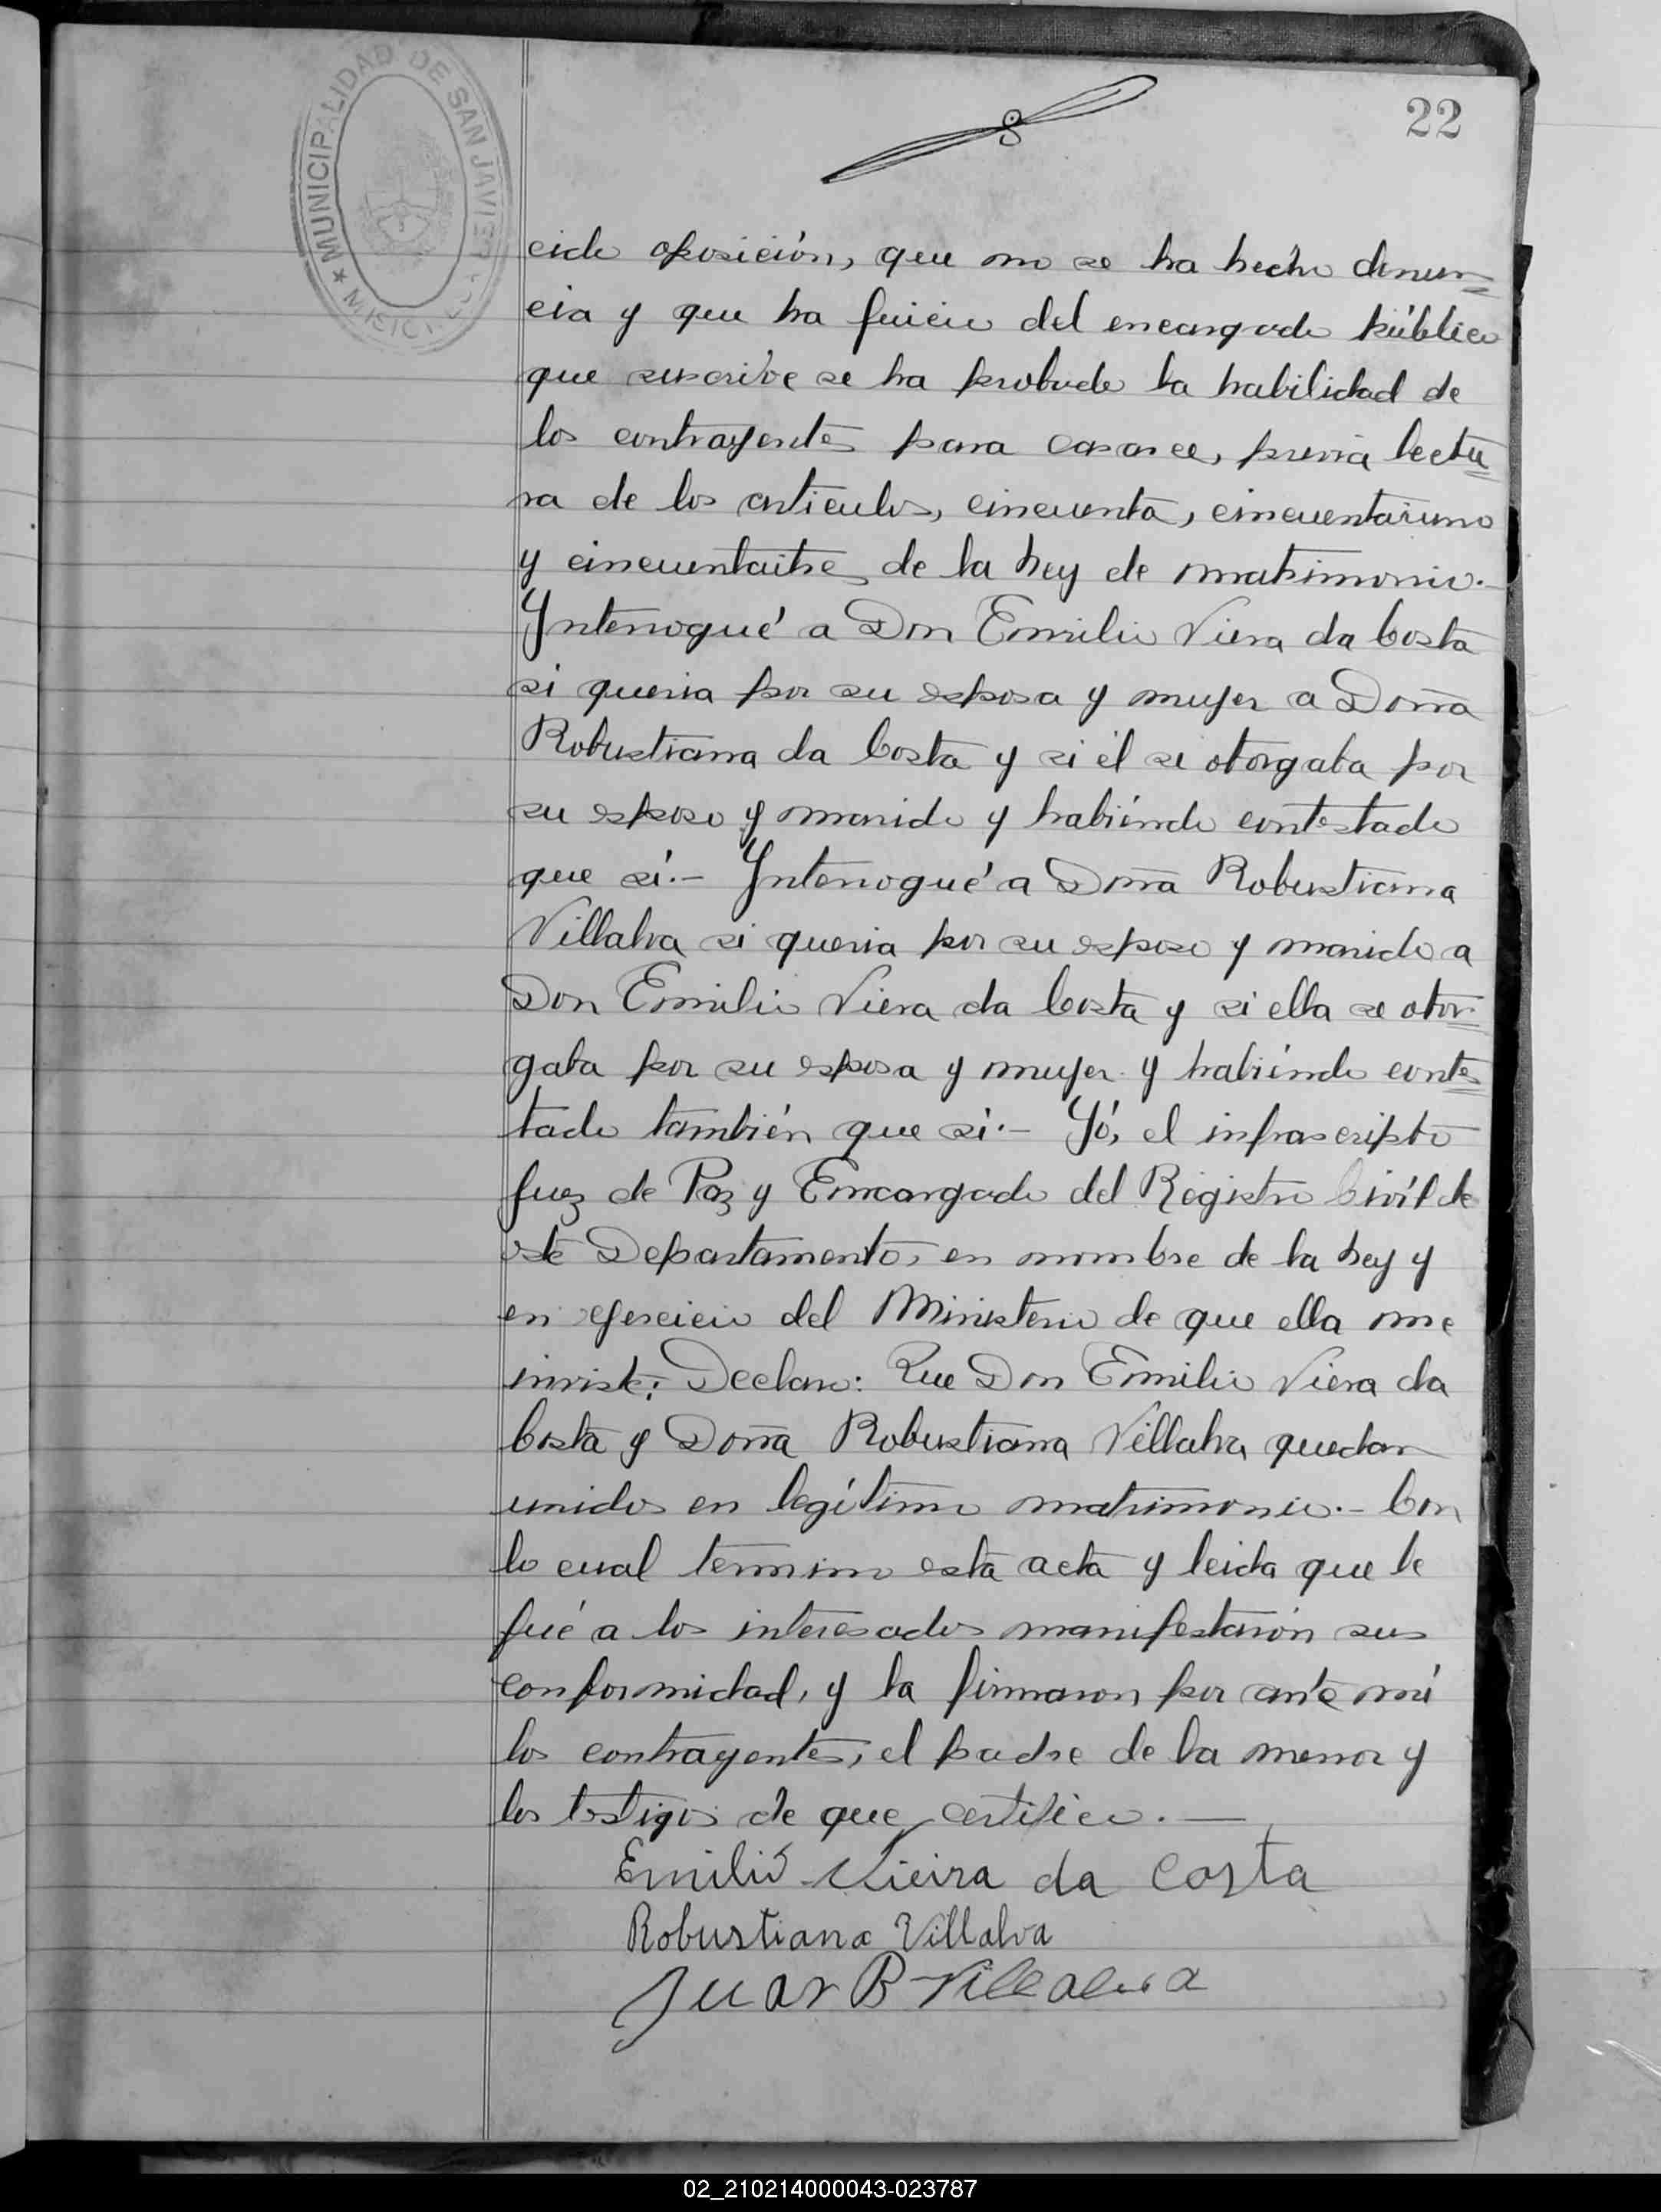 22
MUNICIPALIDAD DE SAN JAVIER
cido oposición, que no se ha hecho denun=
cia y que ha juicio del encargado público
que suscribe se ha probado la habilidad de
los contrayentes para casarce, previa lectu=
ra de los articulos, cincuenta, cincuentaiuno
y cincuentaitres de la Ley de matrimonio.-
Ynterrogué a Don Emilio Viera da Costa
si queria por su esposa y mujer a Doña
Robustiana da Costa y si él se otorgaba por
su esposo y marido y habiéndo contestado
que sí.- Ynterrogué a Doña Robustiana
Villalva si queria por su esposo y marido a
Don Emilio Viera da Costa y si ella se otor=
gaba por su esposa y mujer y habiéndo contes=
tado también que sí.- Yó, el infrascripto
Juez de Paz y Emcargado del Registro Civíl de
este Departamento, en nombre de la Ley y
en ejercicio del Ministerio de que ella me
inviste; Declaro: Que Don Emilio Viera da
Costa y Doña Robustiana Villalva quedan
unidos en legítimo matrimonio.- Con
lo cual termino esta acta y leida que le
fué a los interesados manifestarón sus
conformidad, y la firmaron por ante mí
los contrayentes, el padre de la menor y
los testigos de que certifico.-
Emilio Vieira da Costa
Robustiana Villalva
Juan B Villalva
02_210214000043-023787